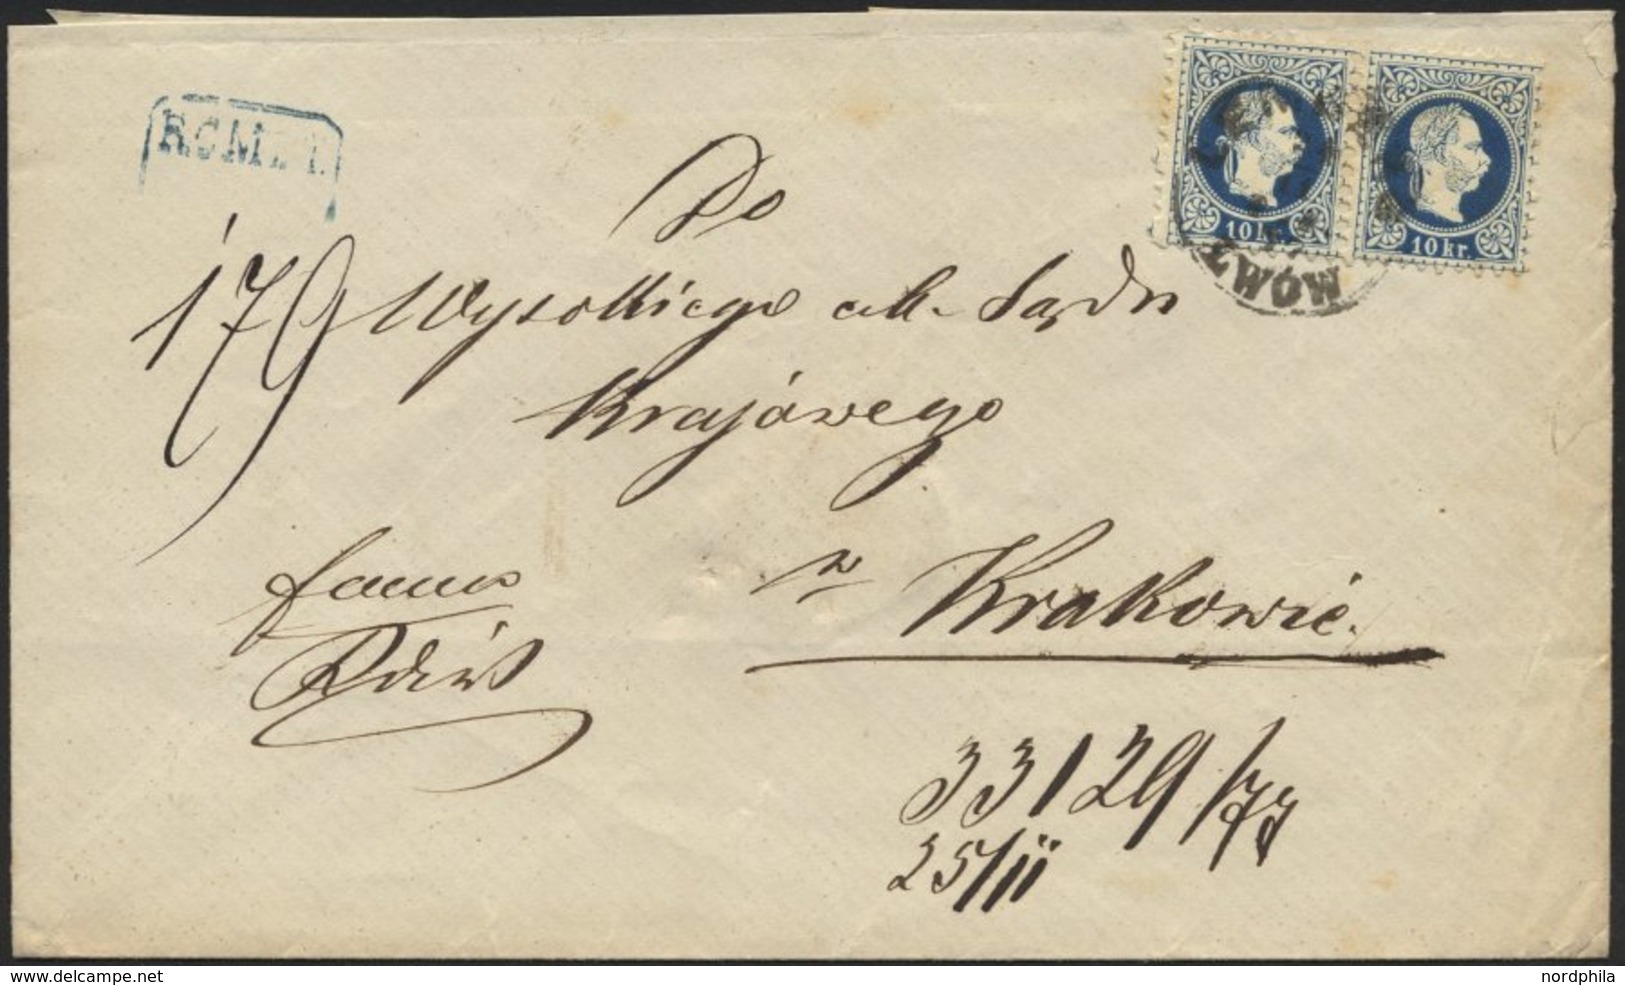 RCM
10 kr.
10 kr.
LWÓW
Do
179 Wysokkiego ck. Sądu
Krajówego
w Krakowie.
franco
33129/77
25/11
www.delcampe.net
nordphila